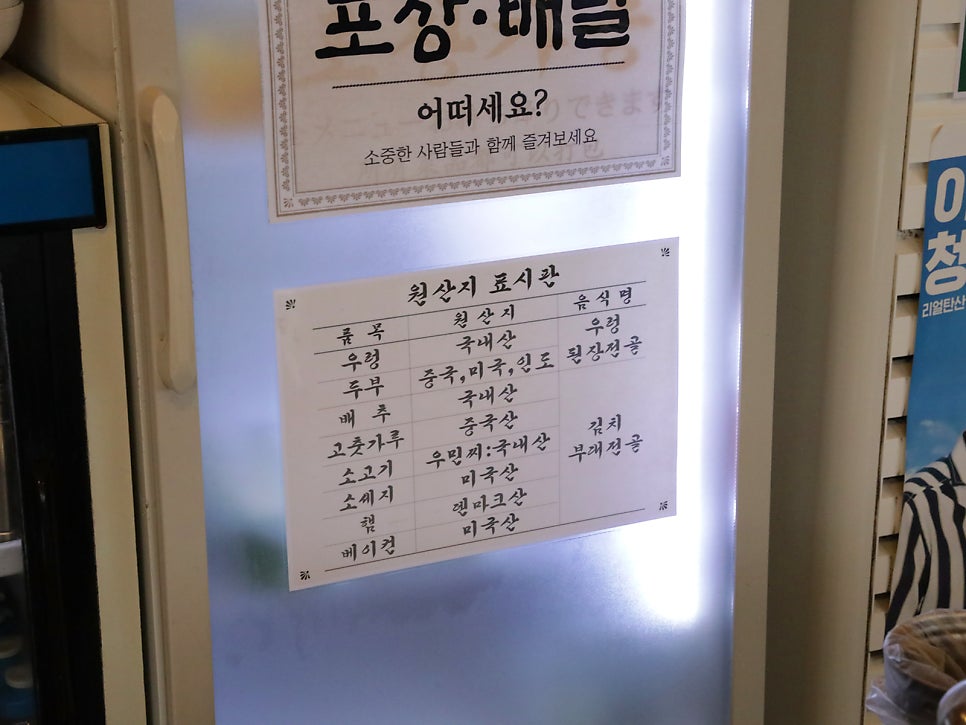 포장·배달
어떠세요?
소중한 사람들과 함께 즐겨보세요
원산지 표시판
품목 원산지 음식명
우렁 국내산 우렁
두부 중국,미국,인도 된장전골
배추 국내산
고춧가루 중국산 김치
소고기 우민찌:국내산 부대전골
소세지 미국산
햄 덴마크산
베이컨 미국산
청
리얼탄산